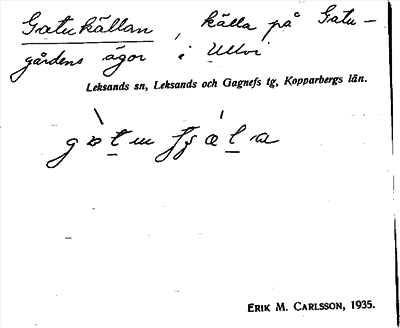 Gatukällan, källa på Gatu-
gårdens ägor i Ullvi
Leksands sn, Leksands och Gagnefs tg, Kopparbergs län.
ERIK M. CARLSSON, 1935.